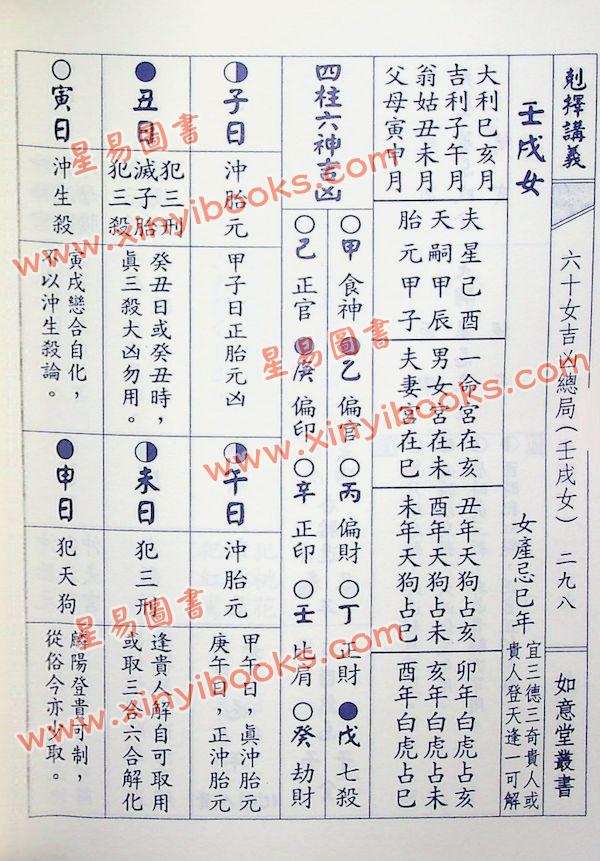 剋擇講義
六十女吉凶總局(壬戌女) 二九八
如意堂叢書
壬戌女
女產忌巳年
宜三德三奇貴人或
貴人登天逢一可解
大利巳亥月
吉利子午月
翁姑丑未月
父母寅申月
夫星己酉
天嗣甲辰
胎元甲子
一命宮在亥
男女宮在未
夫妻宮在巳
丑年天狗占亥
酉年天狗占未
未年天狗占巳
卯年白虎占亥
亥年白虎占未
酉年白虎占巳
四柱六神吉凶
○甲 食神 乙 偏官 ○丙 偏財 ○丁 正財 ●戊 七殺
○己 正官 庚 偏印 ○辛 正印 ○壬 比肩 ○癸 劫財
◑子日
沖胎元
甲子日正胎元凶
◑午日
沖胎元
甲午日，眞沖胎元
庚午日，正沖胎元
●丑日
犯三刑
滅子胎
犯三殺
癸丑日或癸丑時，
眞三殺大凶勿用。
◑未日
犯三刑
逢貴人解自可取用
或取三合六合解化
○寅日
沖生殺
寅戌戀合自化，
不以沖生殺論。
●申日
犯天狗
麟陽登貴可制，
從俗今亦少取。
星易圖書
www.xinyibooks.com
星易圖書
www.xinyibooks.com
星易圖書
www.xinyibooks.com